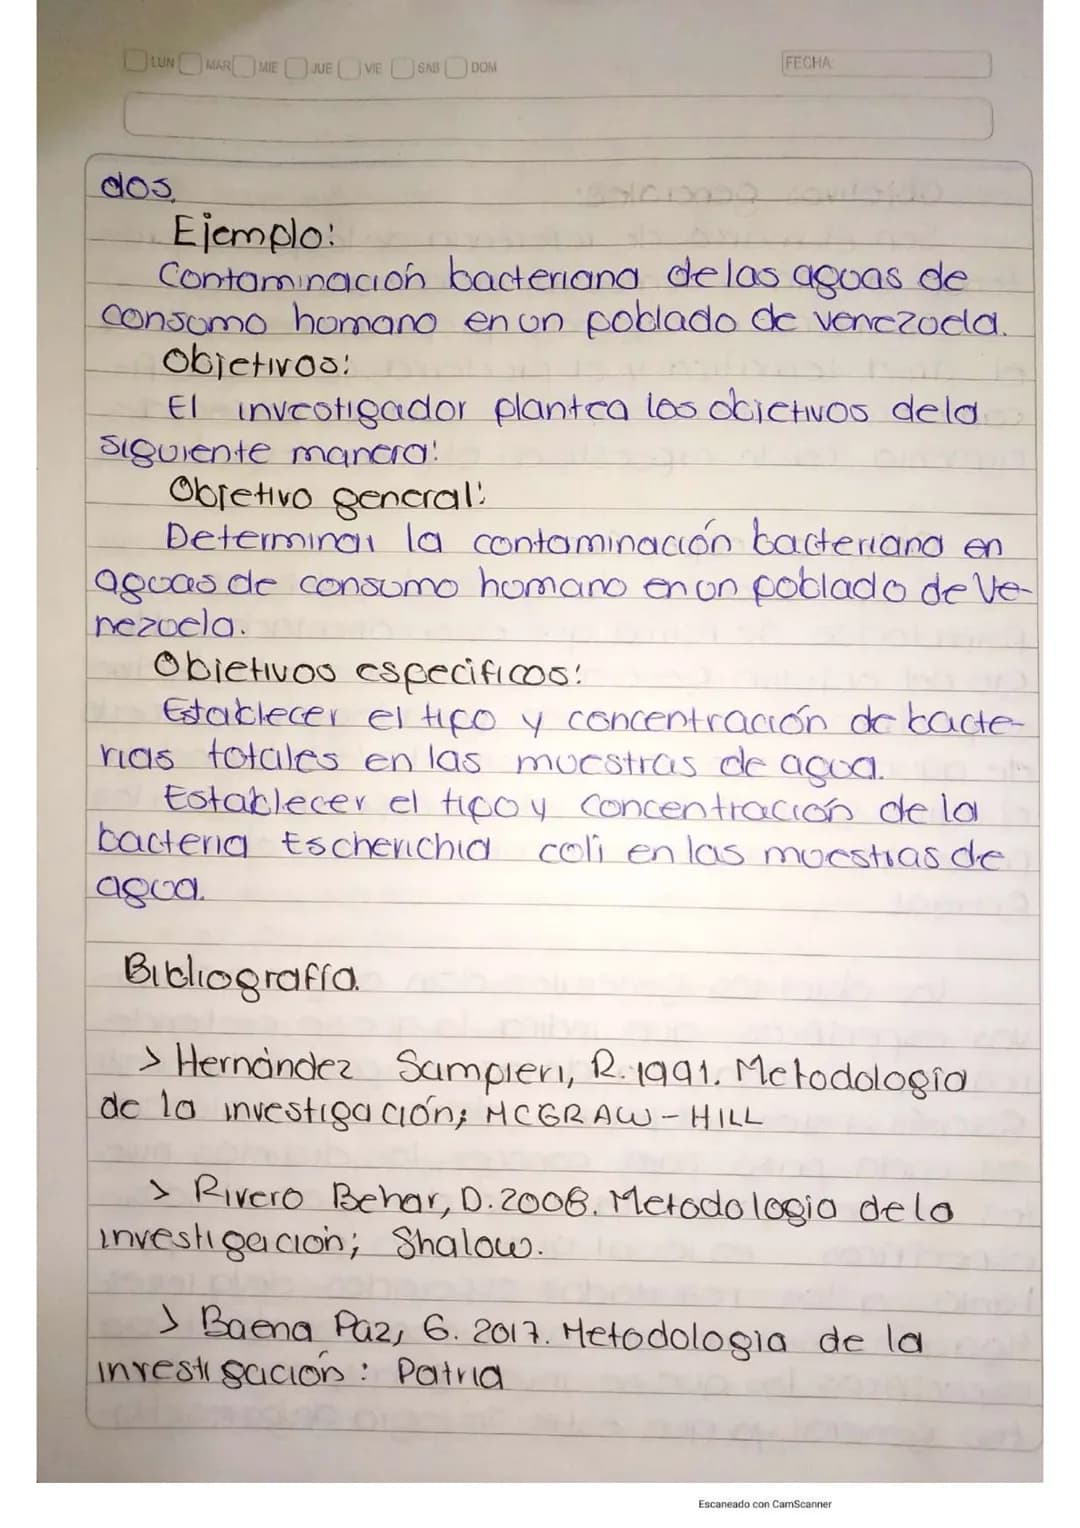 LUN MAR MIE JUE VIE SAB DOM FECHA
dos.
Ejemplo:
Contaminación bacteriana de las aguas de
consumo humano en un poblado de venezuela.
Objetivos:
El investigador plantea los objetivos de la
siguiente manera:
Objetivo general:
Determinar la contaminación bacteriana en
aguas de consumo humano en un poblado de Ve-
nezuela.
Objetivos especificos:
Establecer el tipo y concentración de bacte-
rias totales en las muestras de agua.
Establecer el tipo y concentración de la
bacteria Escherichia coli en las muestras de
agua.
Bibliografía.
> Hernández Sampieri, R. 1991. Metodología
de la investigación; MCGRAW-HILL
> Rivero Behar, D. 2008. Metodologia de la
investigación; Shalow.
> Baena Paz, G. 2017. Metodologia de la
investigación: Patria
Escaneado con CamScanner